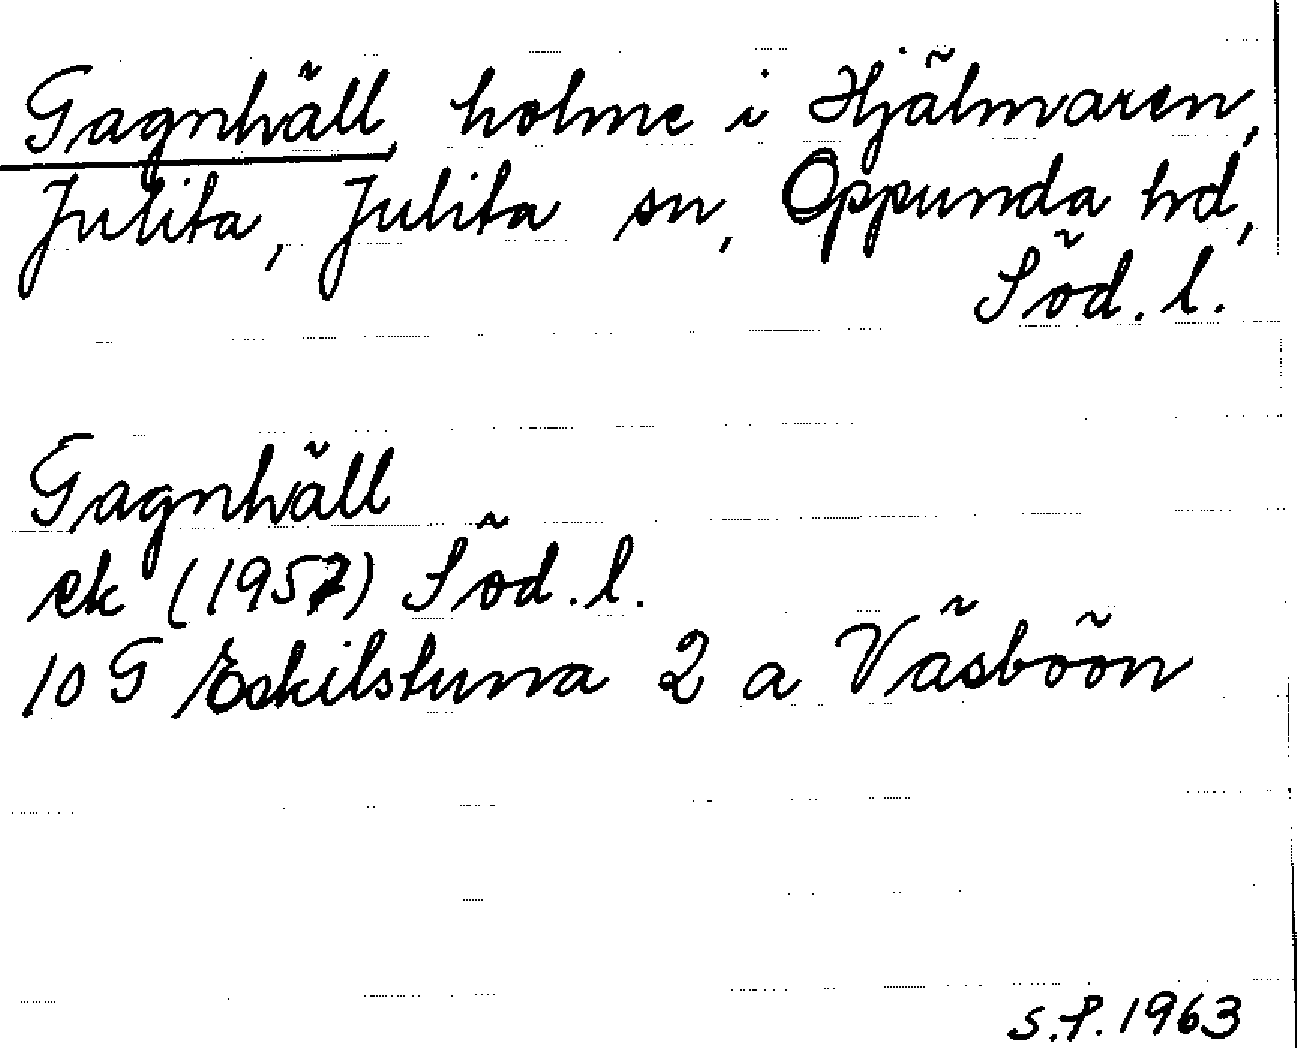 Gagnhäll, holme i Hjälmaren,
Julita, Julita sn, Oppunda hd,
Söd. l.
Gagnhäll
ek (1957) Söd. l.
10 G Eskilstuna 2 a Väsböön
S.P. 1963